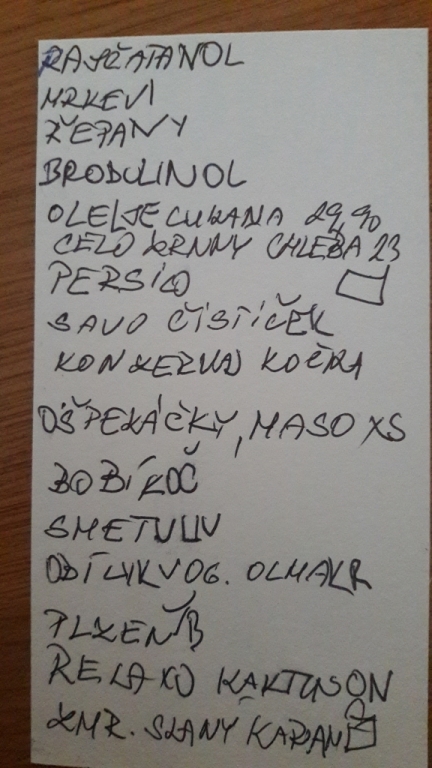 RAJČATANOL
MRKEVI
ŽEPANY
BRODULINOL
OLELJE CUKANA 29,90
CELO ZRNNY CHLEBA 23
PERSIO
SAVO ČISTIČEK
KONZERVA KOČKA
OŠPEKÁČKY, MASO XS
BOBÍKOČ
SMETULIV
OBÍLIKVOG. OLMAKR
PLZEŇB
RELAXO KAKTUSON
ZMR. SLANÝ KAPAN